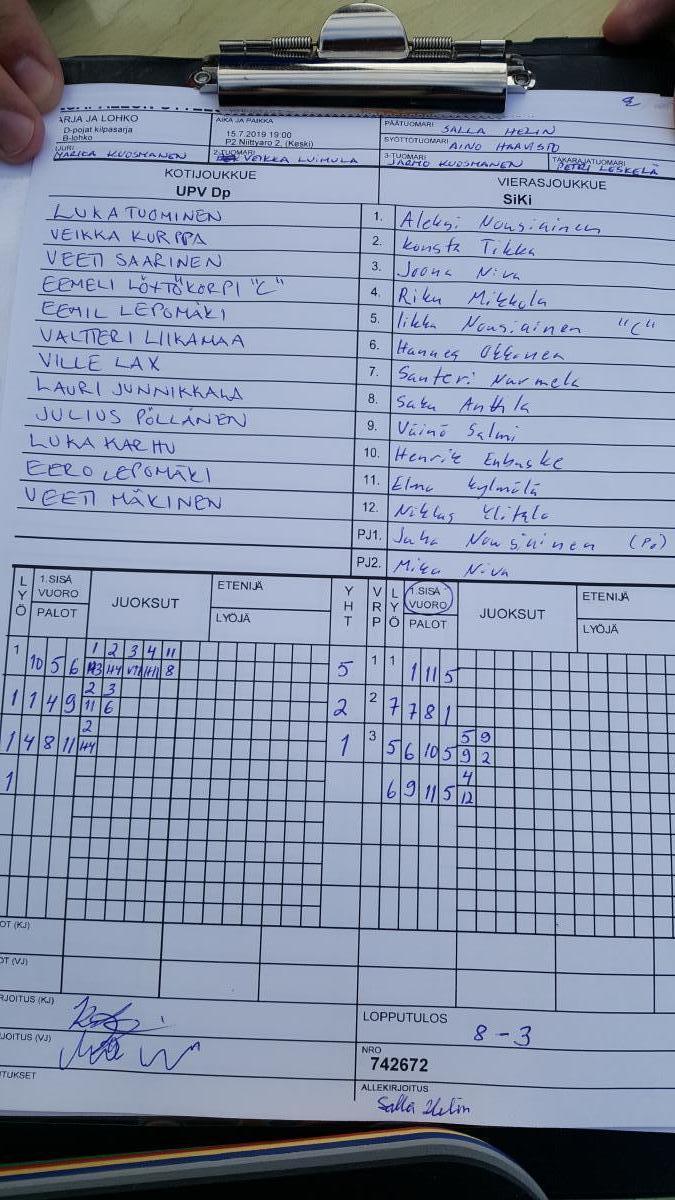 ARJA JA LOHKO
D-pojat kilpasarja
B-lohko
AIKA JA PAIKKA
15.7.2019 19:00
P2 Niittyaro 2, (Keski)
PÄÄTUOMARI SALLA HELIN
SYÖTTÖTUOMARI AINO HAAVISTO
MARIKA KUOSMANEN
2-TUOMARI VEIKKA LUIMULA
3-TUOMARI JARMO KUOSMANEN
TAKARAJATUOMARI PETRI LESKELÄ
KOTIJOUKKUE
UPV Dp
VIERASJOUKKUE
SiKi
LUKA TUOMINEN 1. Aleksi Nousiainen
VEIKKA KURPPA 2. Konsta Tikka
VEETI SAARINEN 3. Joona Niva
EEMELI LÖYTÖKORPI "C" 4. Riku Mikkola
EEMIL LEPOMÄKI 5. Iikka Nousiainen "C"
VALTTERI LIIKAMAA 6. Hannes Okkonen
VILLE LAX 7. Santeri Nurmela
LAURI JUNNIKKALA 8. Saku Anttila
JULIUS PÖLLÄNEN 9. Väinö Salmi
LUKA KARHU 10. Henrik Enbuske
EERO LEPOMÄKI 11. Elmo Kylmälä
VEETI MÄKINEN 12. Niklas Ylitalo
PJ1. Juha Nousiainen (PJ)
PJ2. Mika Niva
LYÖ 1.SISÄ VUORO PALOT JUOKSUT ETENIJÄ LYÖJÄ YHT VRP LYÖ 1.SISÄ VUORO PALOT JUOKSUT ETENIJÄ LYÖJÄ
1 2 3 4 11
1 10 5 6 8 5 1 1 1 11 5
2 3
1 1 4 9 11 6 2 2 7 7 8 1
2 5 9
1 4 8 11 1 3 5 6 10 5 9 2
4
1 6 9 11 5 12
OT (KJ)
OT (VJ)
RJOITUS (KJ)
RJOITUS (VJ)
LOPPUTULOS
8 - 3
NRO
742672
ALLEKIRJOITUS
Salla Helin